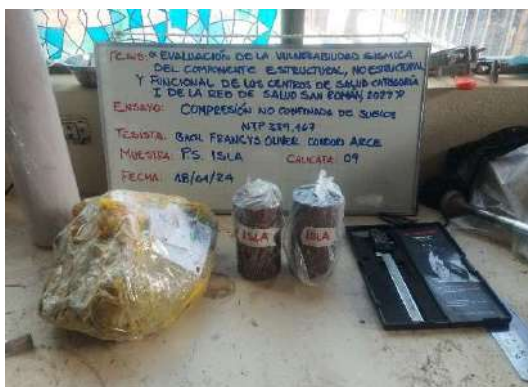 TESIS: "EVALUACIÓN DE LA VULNERABILIDAD SISMICA
DEL COMPONENTE ESTRUCTURAL, NO ESTRUCTURAL
Y FUNCIONAL DE LOS CENTROS DE SALUD CATEGORÍA
I DE LA RED DE SALUD SAN ROMÁN, 2022"
ENSAYO: COMPRESIÓN NO CONFINADA DE SUELOS
NTP 339.167
TESISTA: BACH. FRANCYS OLIVER CONDORI ARCE
MUESTRA: P.S. ISLA CALICATA: 09
FECHA: 18/01/24
ISLA
ISLA